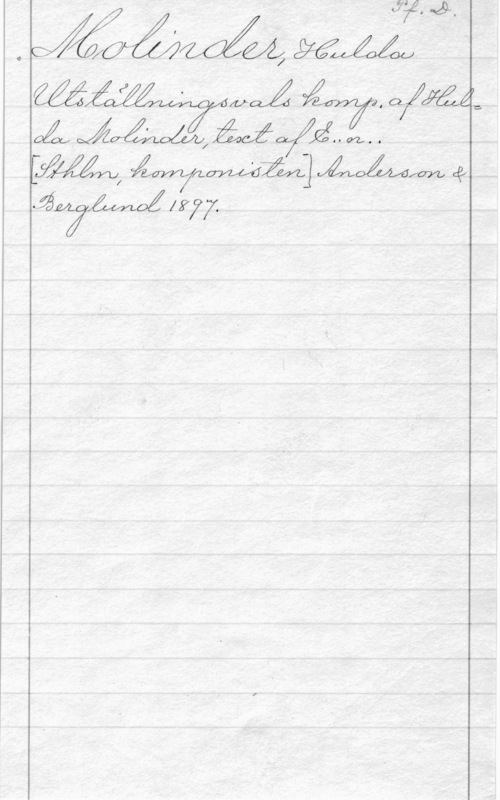 Pf. D.
Molinder, Hulda
Utställningsvals komp. af Hul=
da Molinder, text af E..n..
[Sthlm, komponisten] Anderson &
Berglund 1897.